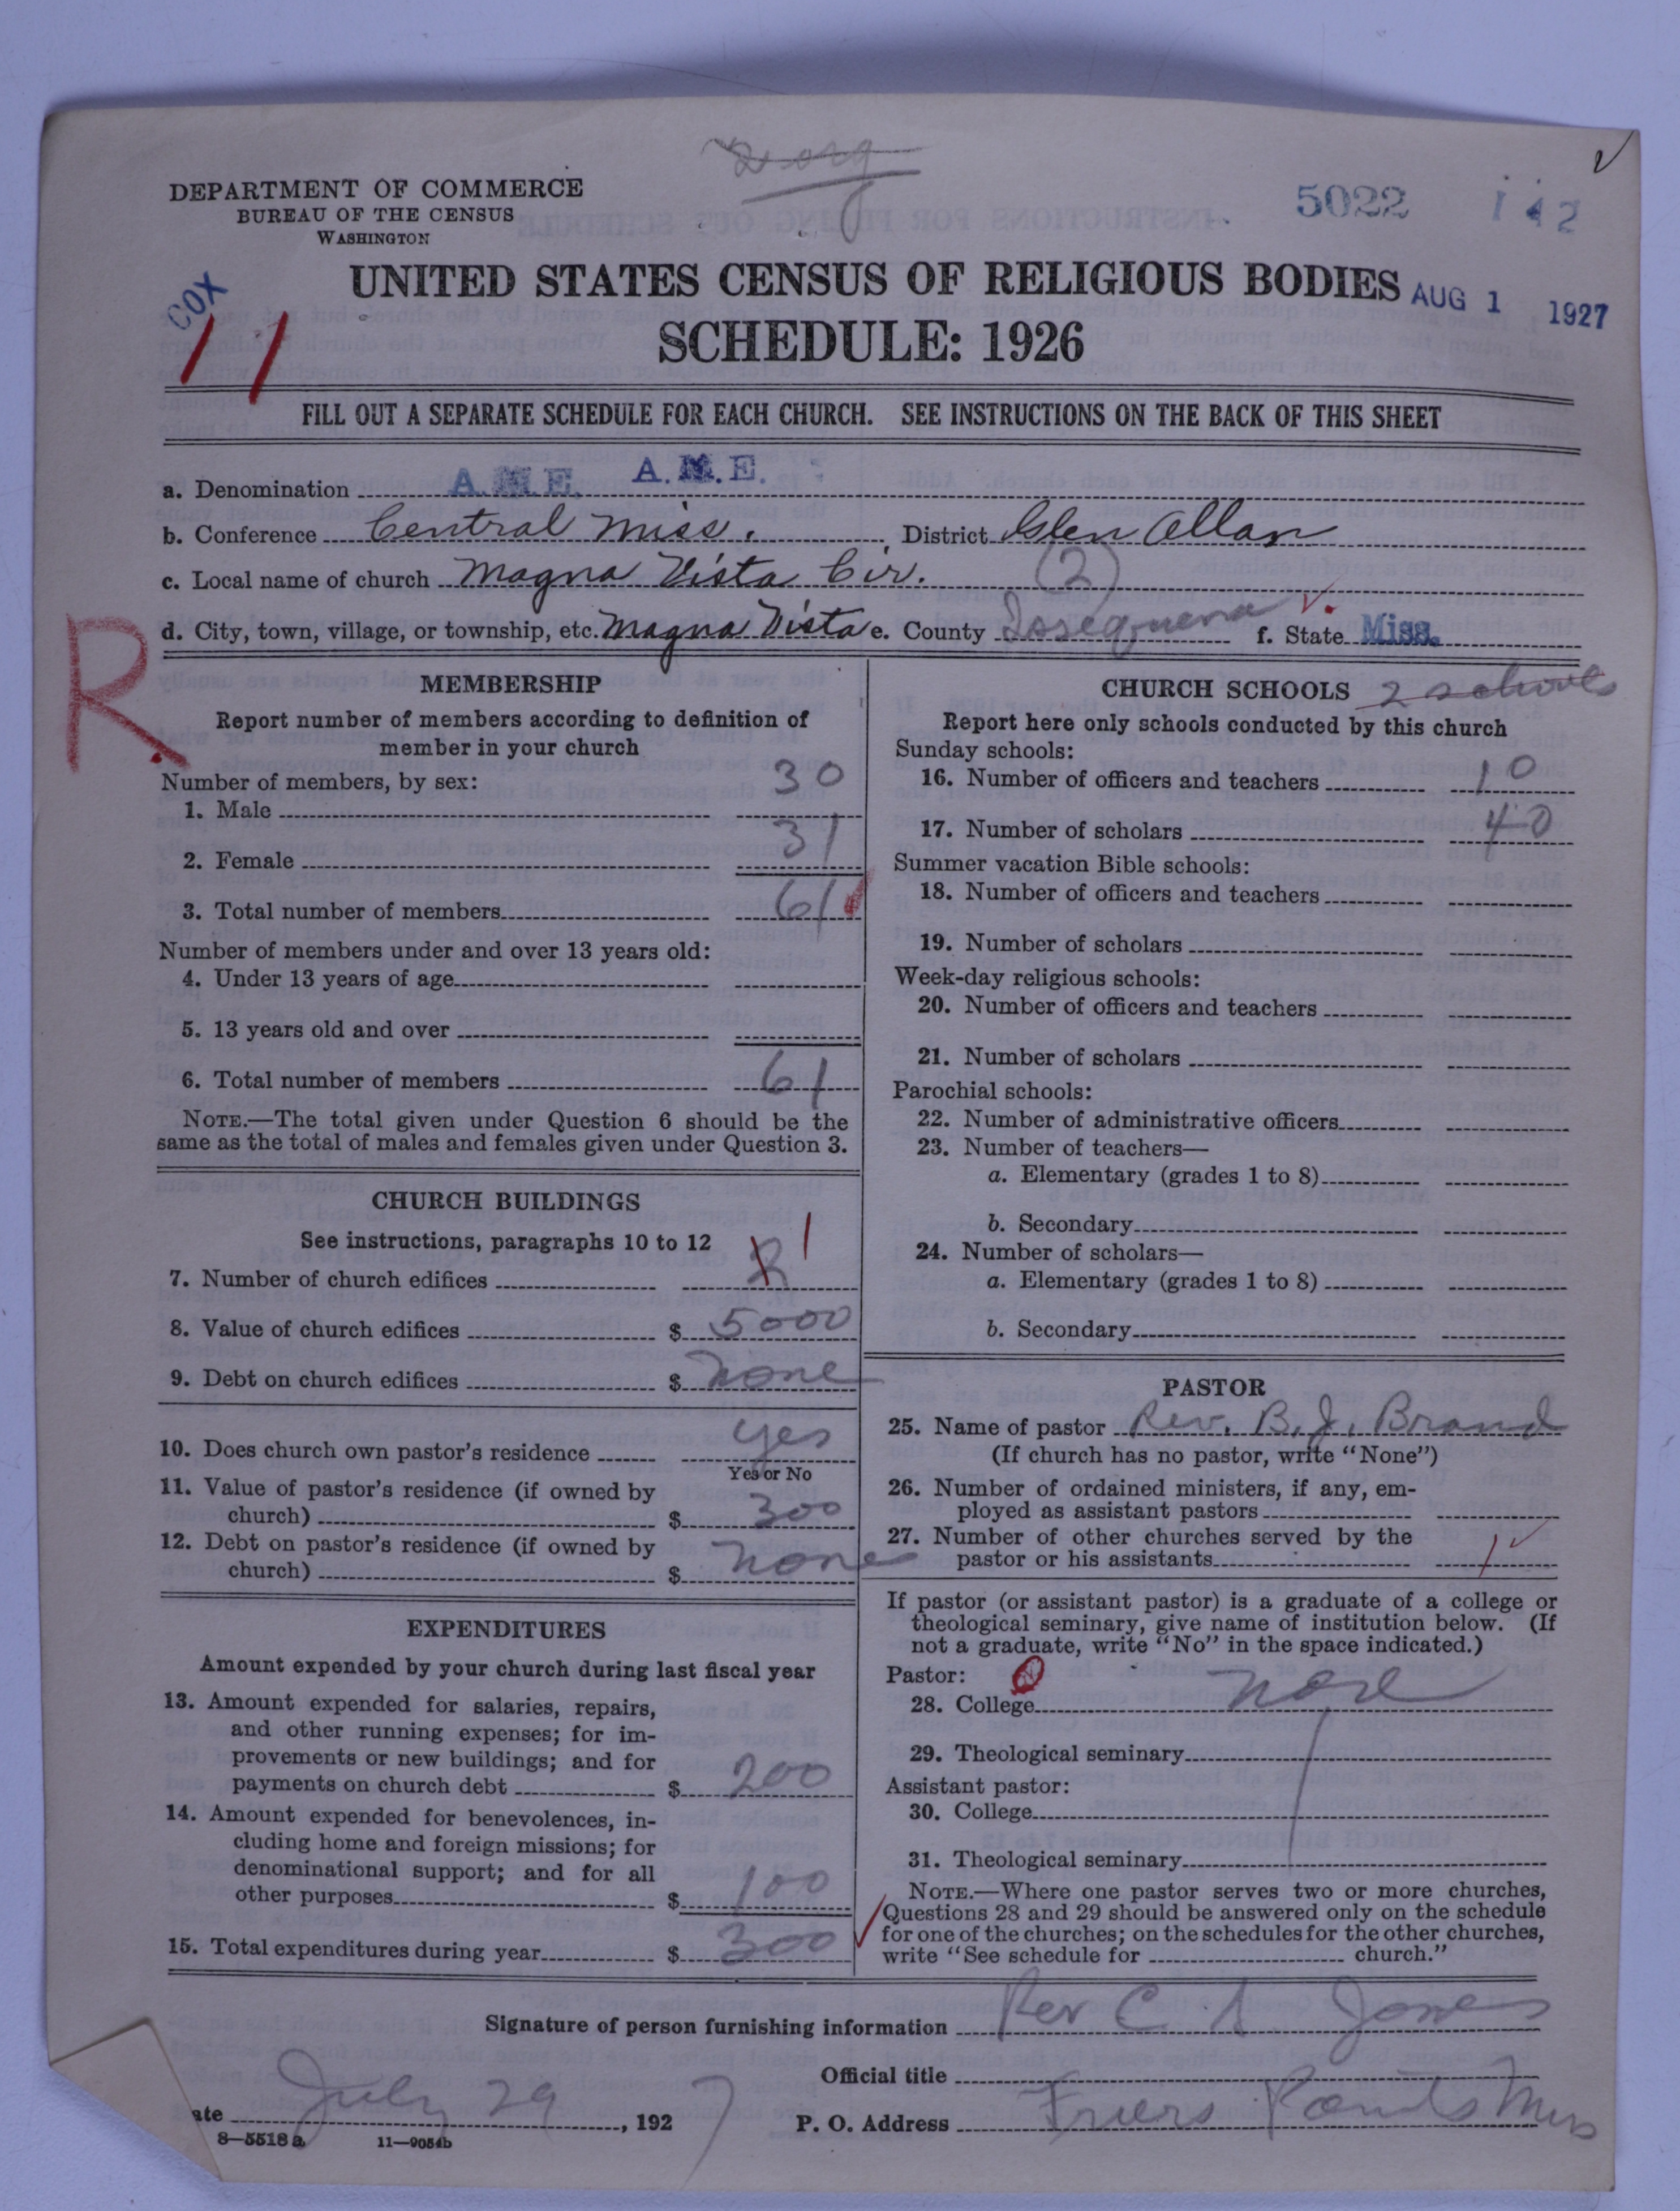 2 org
DEPARTMENT OF COMMERCE
BUREAU OF THE CENSUS
WASHINGTON
5022 142
COX
UNITED STATES CENSUS OF RELIGIOUS BODIES
AUG 1 1927
SCHEDULE: 1926
FILL OUT A SEPARATE SCHEDULE FOR EACH CHURCH. SEE INSTRUCTIONS ON THE BACK OF THIS SHEET
a. Denomination A.M.E. A.M.E.
b. Conference Central Miss. , District Glen Allan
c. Local name of church Magna Vista Cir. (2)
d. City, town, village, or township, etc. Magna Vista e. County f. State Miss.
R.
MEMBERSHIP
Report number of members according to definition of
member in your church
Number of members, by sex:
1. Male 30
2. Female 31
3. Total number of members 61
Number of members under and over 13 years old:
4. Under 13 years of age
5. 13 years old and over
6. Total number of members 61
NOTE.—The total given under Question 6 should be the
same as the total of males and females given under Question 3.
CHURCH BUILDINGS
See instructions, paragraphs 10 to 12
7. Number of church edifices 2 1
8. Value of church edifices $ 5000
9. Debt on church edifices $ None
10. Does church own pastor's residence yes
Yes or No
11. Value of pastor's residence (if owned by
church) $ 300
12. Debt on pastor's residence (if owned by
church) $ None
EXPENDITURES
Amount expended by your church during last fiscal year
13. Amount expended for salaries, repairs,
and other running expenses; for im-
provements or new buildings; and for
payments on church debt $ 200
14. Amount expended for benevolences, in-
cluding home and foreign missions; for
denominational support; and for all
other purposes $ 100
15. Total expenditures during year $ 300
CHURCH SCHOOLS 2 schools
Report here only schools conducted by this church
Sunday schools:
16. Number of officers and teachers 10
17. Number of scholars 40
Summer vacation Bible schools:
18. Number of officers and teachers
19. Number of scholars
Week-day religious schools:
20. Number of officers and teachers
21. Number of scholars
Parochial schools:
22. Number of administrative officers
23. Number of teachers—
a. Elementary (grades 1 to 8)
b. Secondary
24. Number of scholars—
a. Elementary (grades 1 to 8)
b. Secondary
PASTOR
25. Name of pastor Rev. B. J. Brand
(If church has no pastor, write "None")
26. Number of ordained ministers, if any, em-
ployed as assistant pastors
27. Number of other churches served by the
pastor or his assistants 1
If pastor (or assistant pastor) is a graduate of a college or
theological seminary, give name of institution below. (If
not a graduate, write "No" in the space indicated.)
Pastor:
28. College None
29. Theological seminary
Assistant pastor:
30. College
31. Theological seminary
NOTE.—Where one pastor serves two or more churches,
Questions 28 and 29 should be answered only on the schedule
for one of the churches; on the schedules for the other churches,
write "See schedule for church."
Signature of person furnishing information Rev C A Jones
Official title
ate July 29, 1927 P. O. Address Friers Points Miss
8—5518a 11—9054b